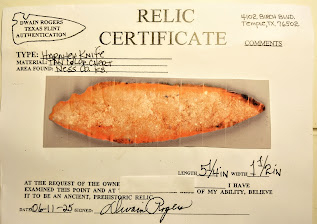 DWAIN ROGERS
TEXAS FLINT
AUTHENTICATION
RELIC
CERTIFICATE
4102 BIRCH BLVD.
TEMPLE, TX. 76502
COMMENTS
TYPE: HARAHEY KNIFE
MATERIAL: TAN COLOR CHERT
AREA FOUND: NESS CO. KS.
LENGTH 5 3/4 IN WIDTH 1 1/2 IN
AT THE REQUEST OF THE OWNE I HAVE
EXAMINED THIS POINT AND A OF MY ABILITY, BELIEVE
IT TO BE AN ANCIENT, PREHISTORIC RELIC
DATED 06-11-25 SIGNED: Dwain Rogers